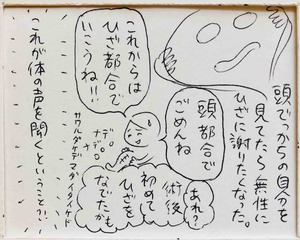 頭でっかちの自分を
見てたら無性に
ひざに謝りたくなった。
頭都合で
ごめんね
あれ?
術後
初めて
ひざを
なでたかも
これからは
ひざ都合で
いこうね!!
ナデ
ナデ
サワルダケデマダイタイケド
これが体の声を聞くということ?!